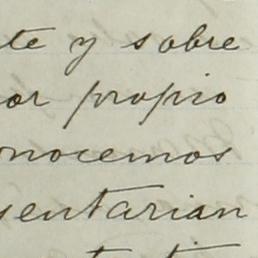 te y sobre
or propio
nocemos
sentarian